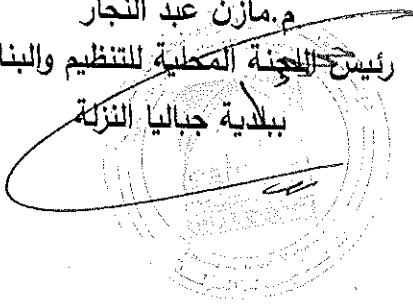 م.مازن عبد النجار
رئيس اللجنة المحلية للتنظيم والبنا
ببلدية جباليا النزلة